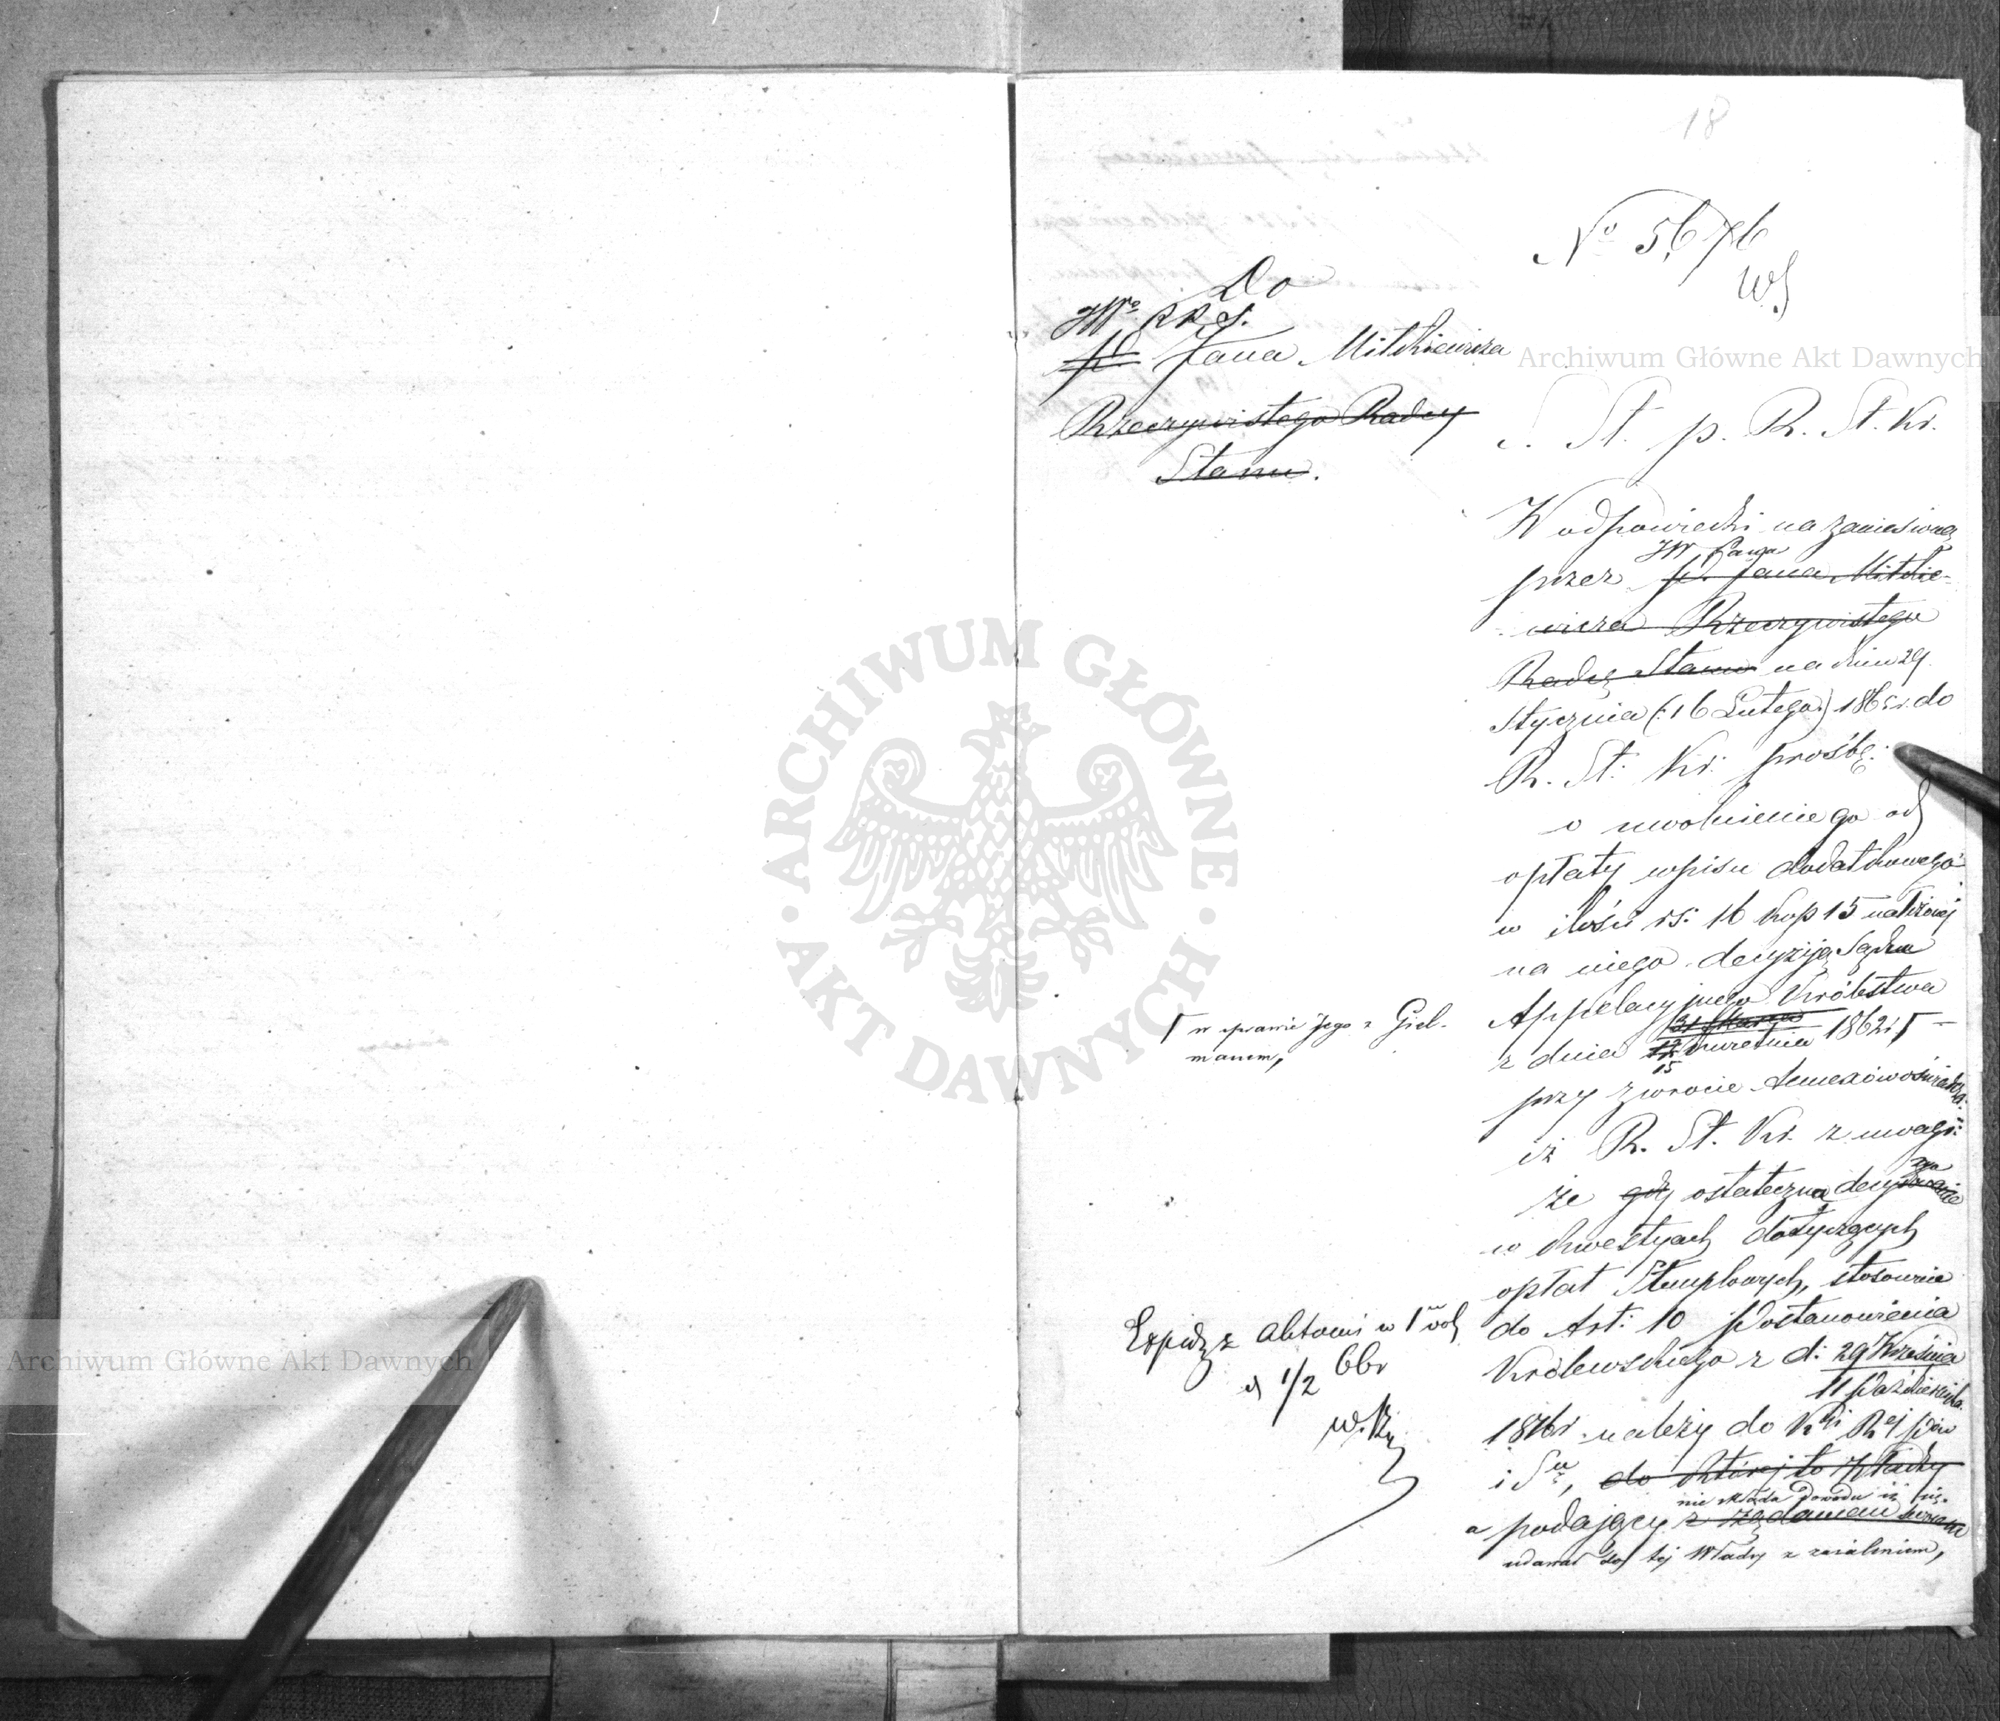 18
No 5676
WS
Do
JWo RRS.
P. Jana Mitkiewicza
Rzeczywistego Radcy
Stanu.
S. St. p. R. St. Kr.
W odpowiedzi na zaniesioną
JW Pana
przez P. Jana Mitkie-
wicza Rzeczywistego
Radcę Stanu na dniu 29
Stycznia (:16 Lutego:) 186 r. do
R. St: Kr: prośbę:
o uwolnienie go od
opłaty wpisu dodatkowego
w ilości rs: 16 kop 15 nałożonej
na niego decyzją Sądu
Appelacyjnego Królestwa
z dnia Kwietnia 1862 r
15
w sprawie Jego z Giel-
manem,
przy zwrocie oświadcza:
iż R. St. Kr. z uwagi:
że gdy ostateczna decyzya
w kwestyach dotyczących
opłat Stemplowych, stosownie
do Art: 10 Postanowienia
Królewskiego z d: 29 Września
11 Października
18 r. należy do Kji Rej Pow
i S, do której to Władzy
nie składa dowodu iż się
a podający z żądaniem swoim
udawał do tej Władzy z zażaleniem,
z aktami w 1
d 1/2 66r
Archiwum Główne Akt Dawnych
Archiwum Główne Akt Dawnych
ARCHIWUM GŁÓWNE
AKT DAWNYCH